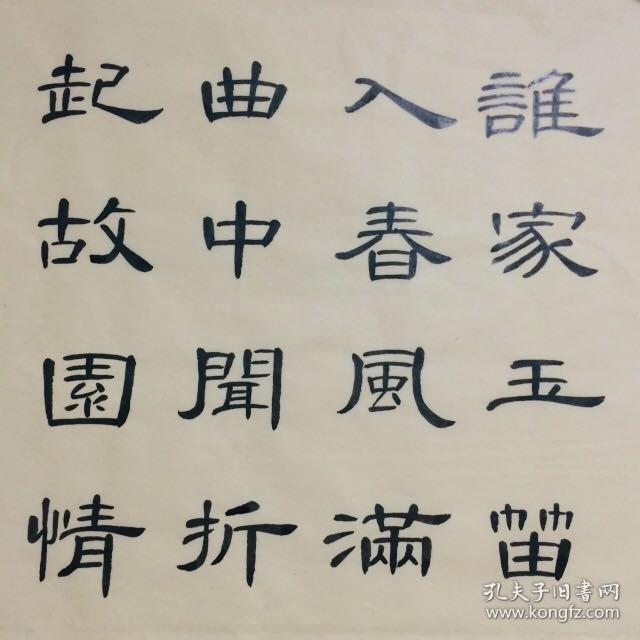 誰家玉笛
入春風滿
曲中聞折
起故園情
孔夫子旧書网
www.kongfz.com